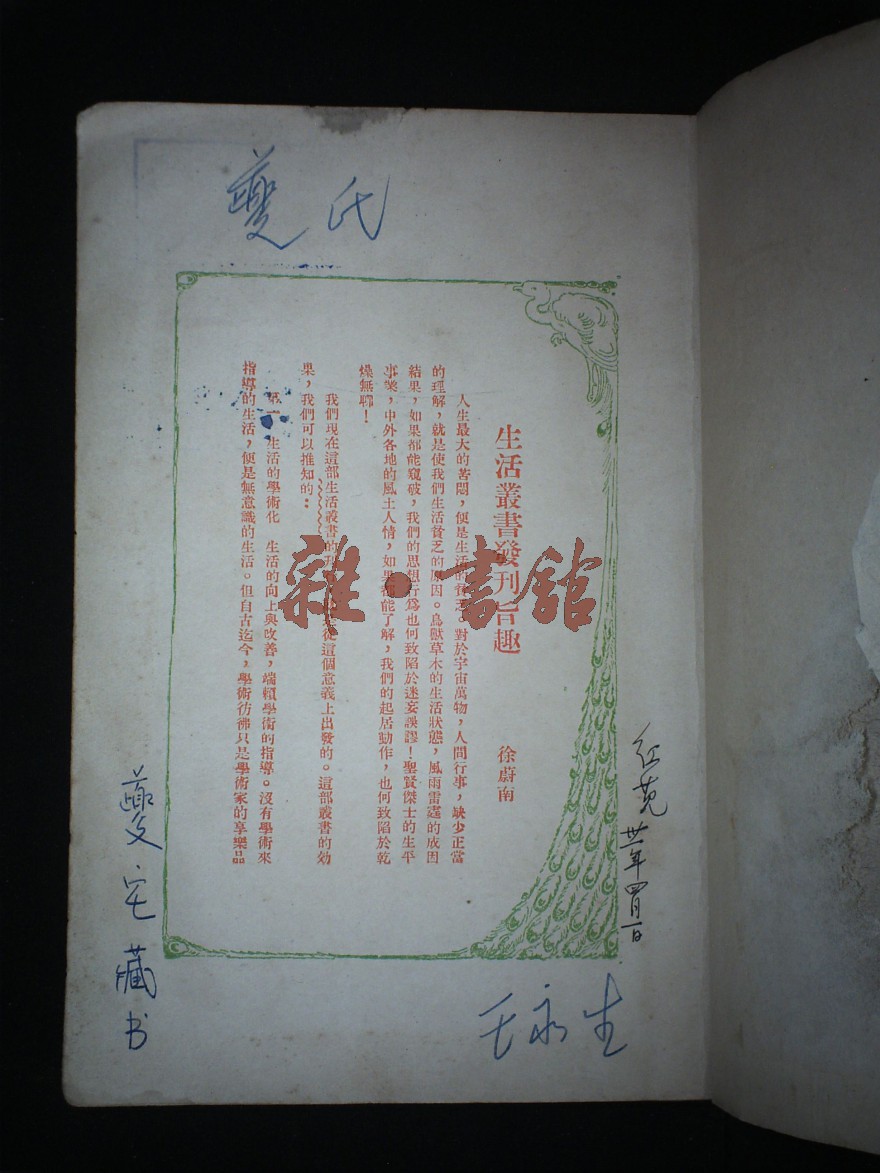 夔氏
生活叢書發刊旨趣
徐蔚南
人生最大的苦悶，便是生活的貧乏。對於宇宙萬物，人間行事，缺少正當
的理解，就是使我們生活貧乏的原因。鳥獸草木的生活狀態，風雨雷霆的成因
結果，如果都能窺破，我們的思想行爲也何致陷於迷妄誤謬！聖賢傑士的生平
事業，中外各地的風土人情，如果都能了解，我們的起居動作，也何致陷於乾
燥無聊！
我們現在這部生活叢書的 從這個意義上出發的。這部叢書的効
果，我們可以推知的：
第一 生活的學術化 生活的向上與改善，端賴學術的指導。沒有學術來
指導的生活，便是無意識的生活。但自古迄今，學術彷彿只是學術家的享樂品
雜·書館
紅苑 卅一年四月一日
夔宅藏书
王永生